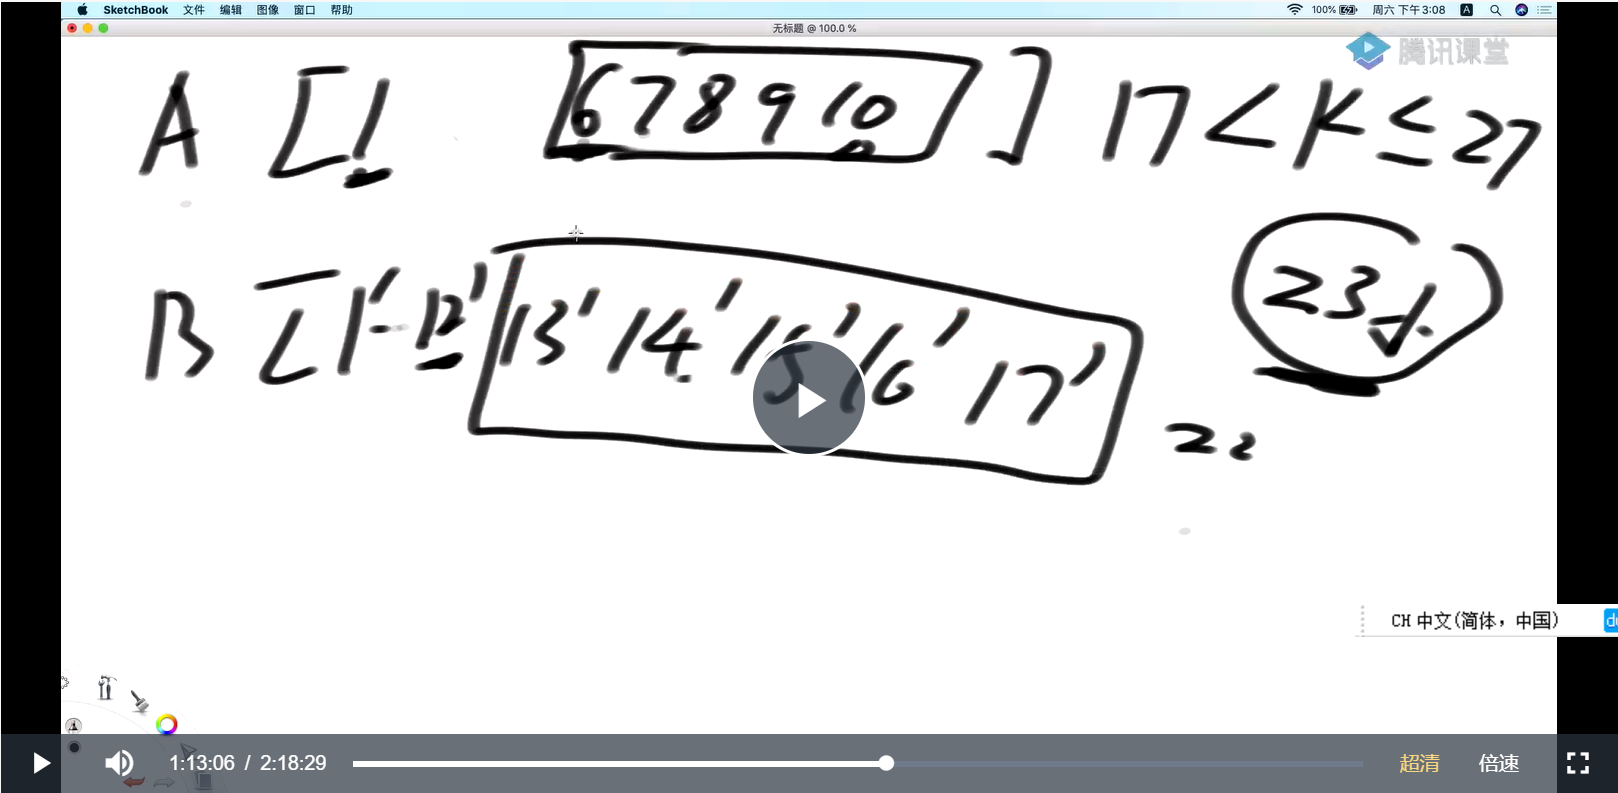 SketchBook 文件 编辑 图像 窗口 帮助 100% 周六 下午3:08 A
无标题 @ 100.0 %
腾讯课堂
A [1 6 7 8 9 10 ] 17 < K ≤ 27
B [1' - 12' 13' 14' 15' 16' 17'
23
22
CH 中文(简体，中国)
1:13:06 / 2:18:29 超清 倍速